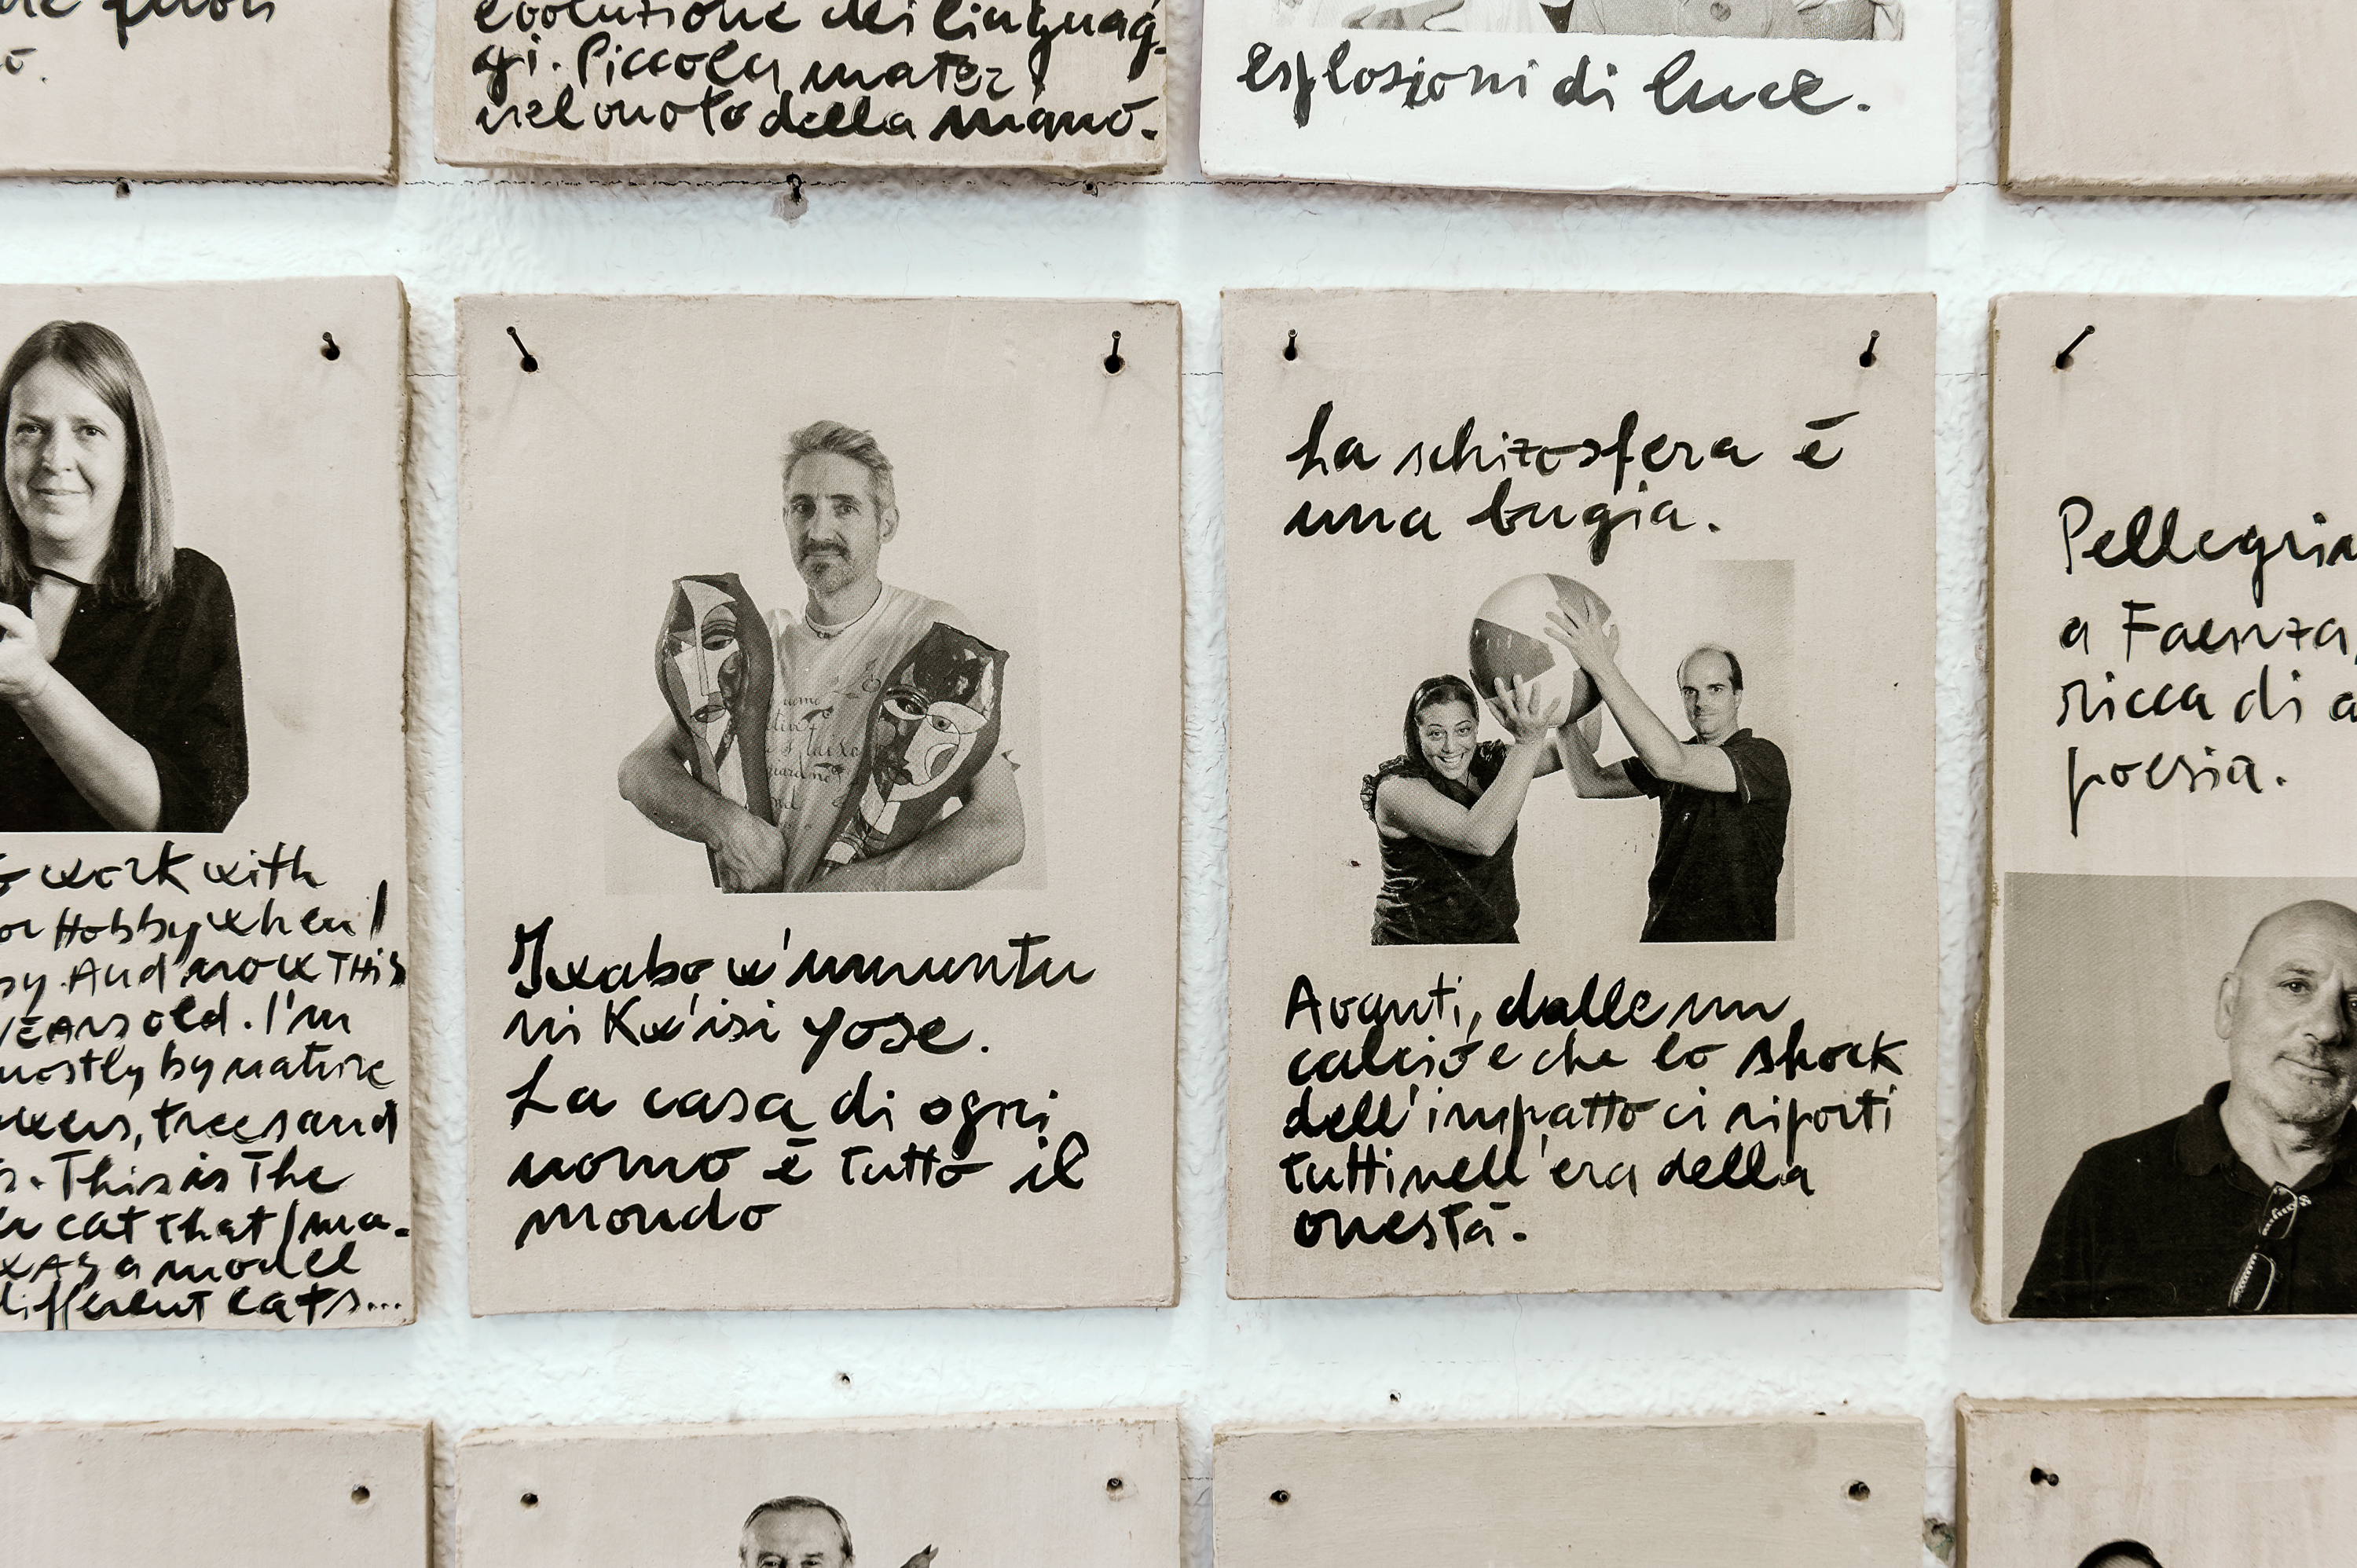 evoluzione dei linguag-
gi. Piccola mater
nel moto della mano.
esplosioni di luce.
work with
Hobby when I
And now THiS
YEARS old. I'm
mostly by nature
trees and
This is The
cat that I ma-
a modell
different cats...
Ixabo w'umuntu
ni Kw'isi yose.
La casa di ogni
uomo è tutto il
mondo
La schizosfera è
una bugia.
Avanti, dalle un
calcio e che lo shock
dell'impatto ci riporti
tutti nell'era della
onestà.
a Faenza,
ricca di
poesia.